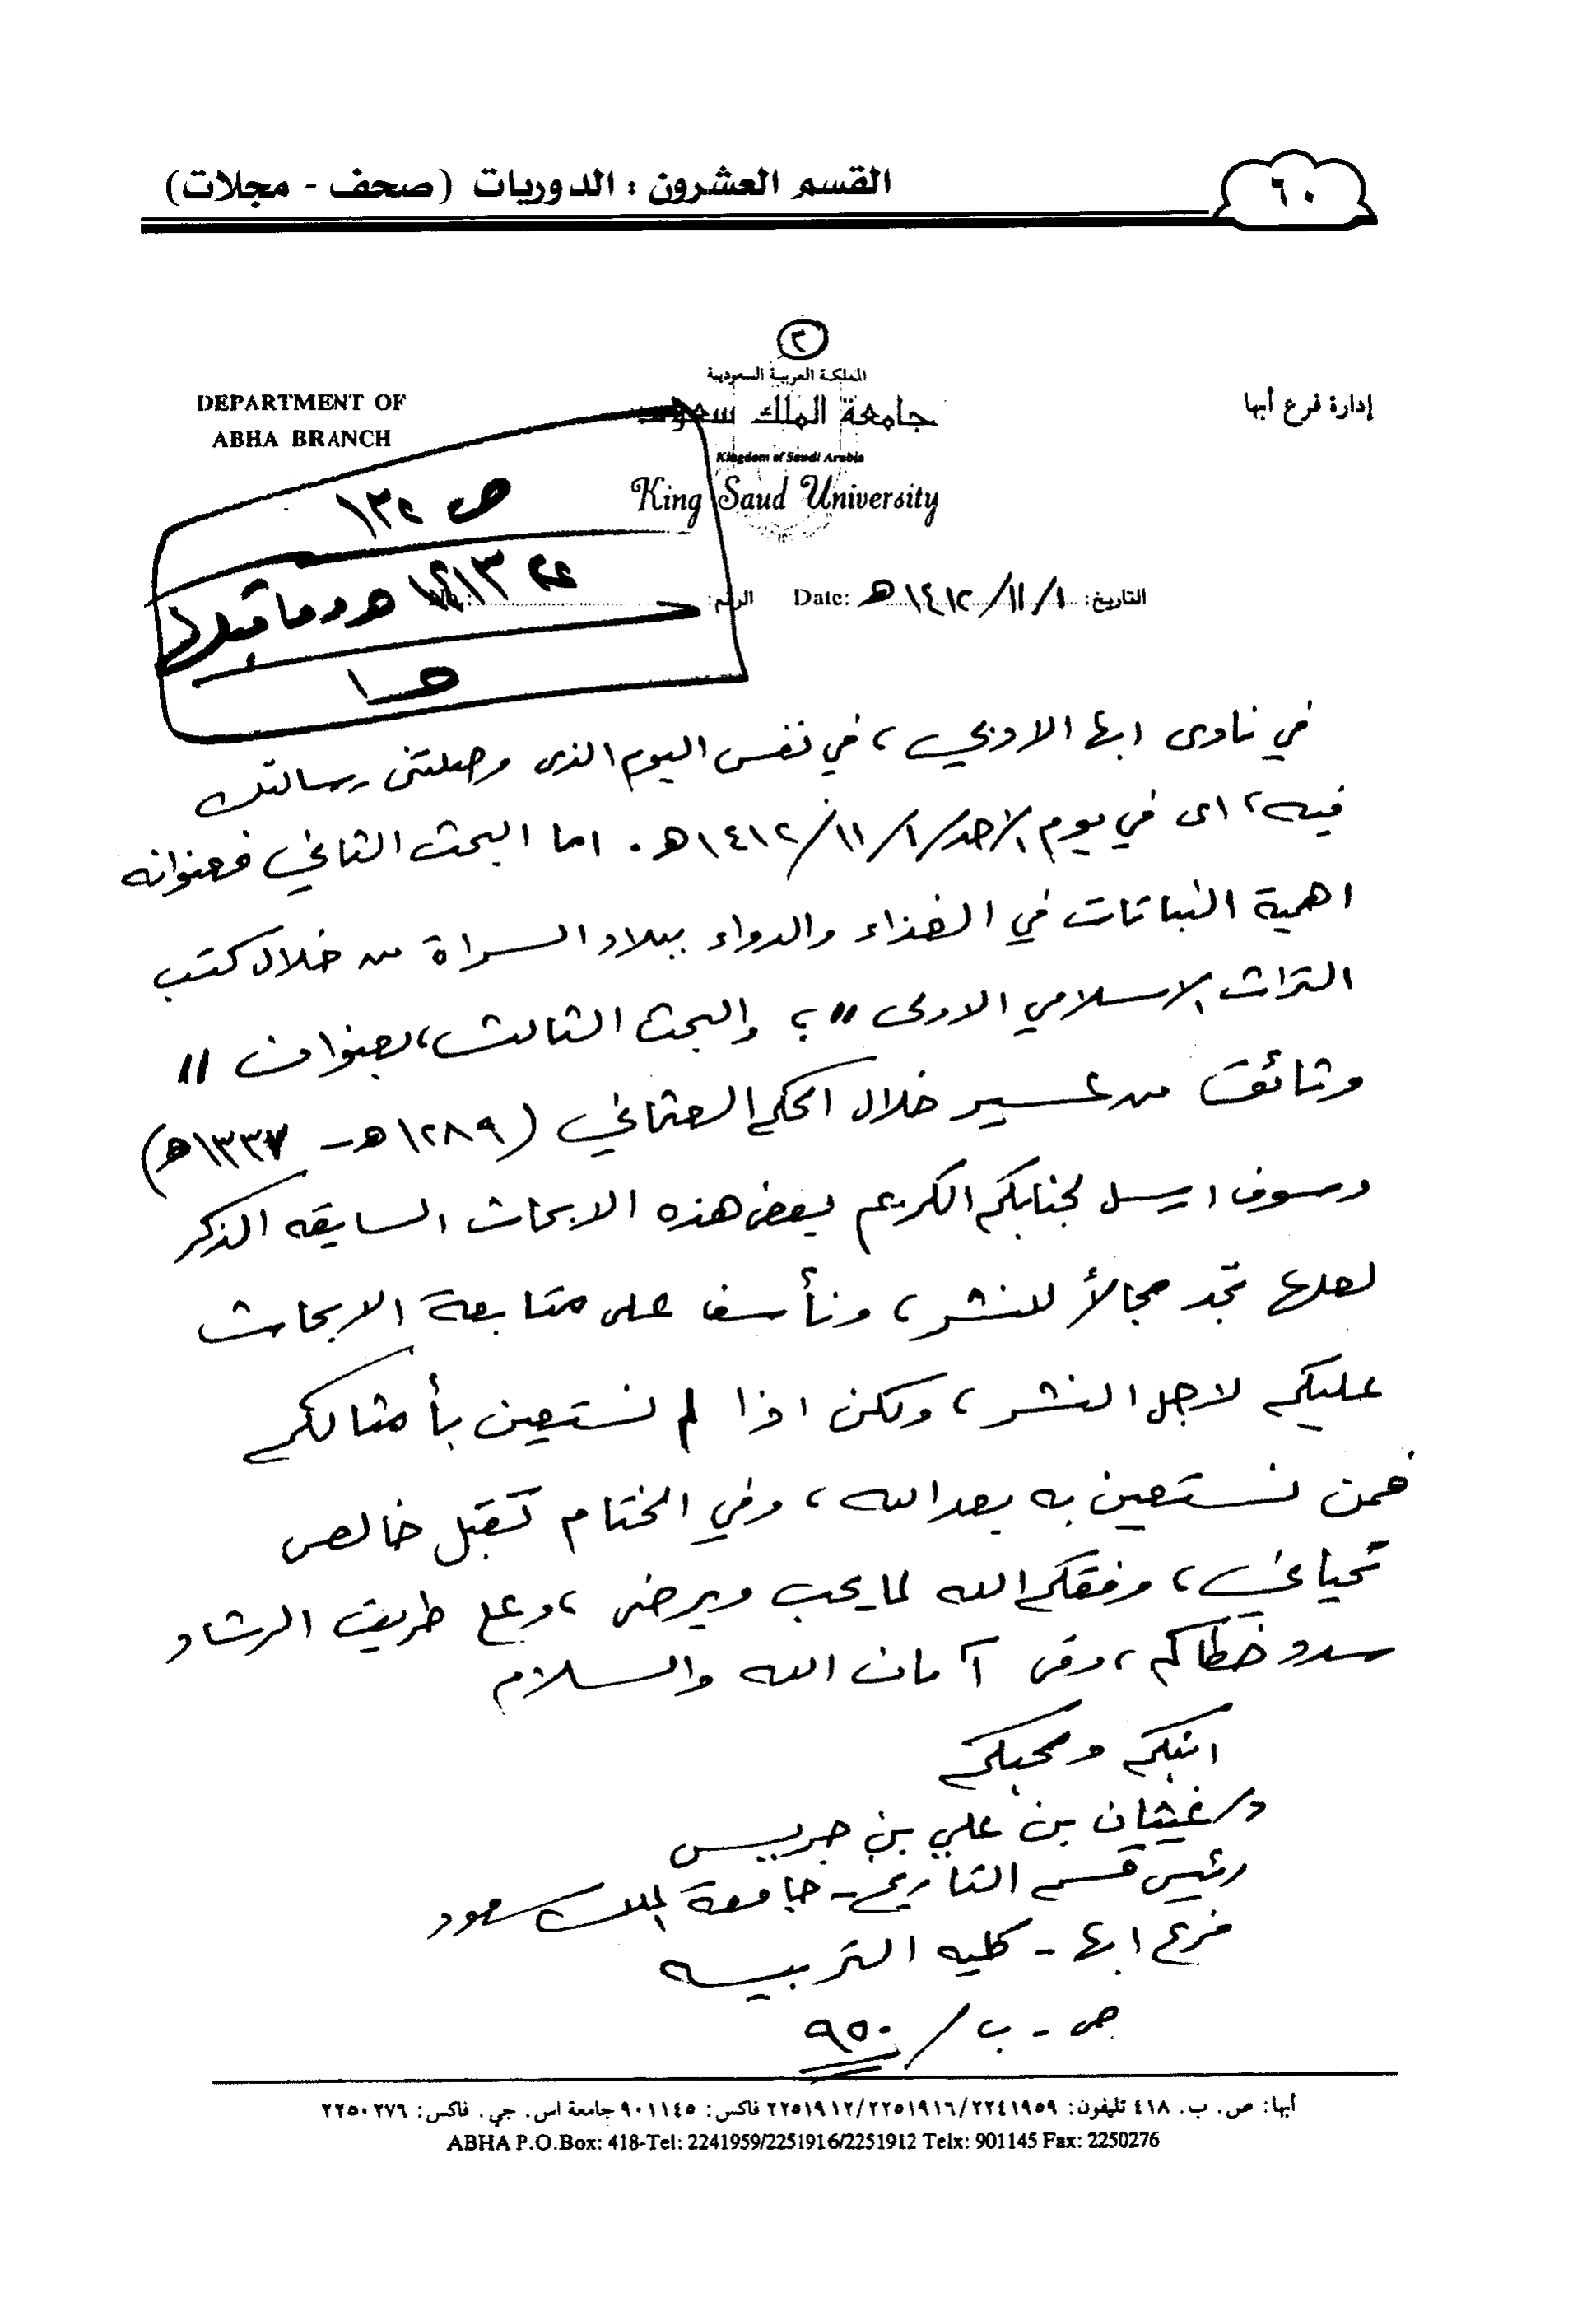 ٦٠
القسم العشرون : الدوريات (صحف - مجلات)
٢
المملكة العربية السعودية
جامعة الملك سعود
Kingdom of Saudi Arabia
King Saud University
إدارة فرع أبها
DEPARTMENT OF
ABHA BRANCH
التاريخ: ١/١١/١٤١٢هـ :Date
الرقم:
هـ وما قبلها
في نادى ابها الادبي، في نفس اليوم الذى وصلتنى رسالتك
فيه، اى في يوم الاحد/١/١١/١٤١٢هـ. اما البحث الثاني فعنوانه
اهمية النباتات في الغذاء والدواء ببلاد السراة من خلال كتب
التراث الاسلامي الاولى"؛ والبحث الثالث، بعنوان "
وثائق من عسير خلال الحكم العثماني (١٢٨٩هـ - ١٣٣٧هـ)
وسوف ارسل لجنابكم الكريم بعض هذه الابحاث السابقه الذكر
لعلها تجد مجالاً للنشر، ونأسف على متابعة الابحاث
عليكم لاجل النشر، ولكن اذا لم نستعين بأمثالكم
فمن نستعين به بعد الله، وفي الختام تقبل خالص
تحياتي، وفقكم الله لما يحب ويرضى، وعلى طريق الرشاد
سدد خطاكم، وفى آمان الله والسلام
ابنكم ومحبكم
د/غيثان بن علي بن جريس
رئيس قسم التاريخ - جامعة الملك سعود
فرع ابها - كليه التربيه
ص - ب / ٩٥٠
أبها: ص. ب. ٤١٨ تليفون: ٢٢٤١٩٥٩/٢٢٥١٩١٦/٢٢٥١٩١٢ فاكس: ٩٠١١٤٥ جامعة اس. جي. فاكس: ٢٢٥٠٢٧٦
ABHA P.O.Box: 418-Tel: 2241959/2251916/2251912 Telx: 901145 Fax: 2250276